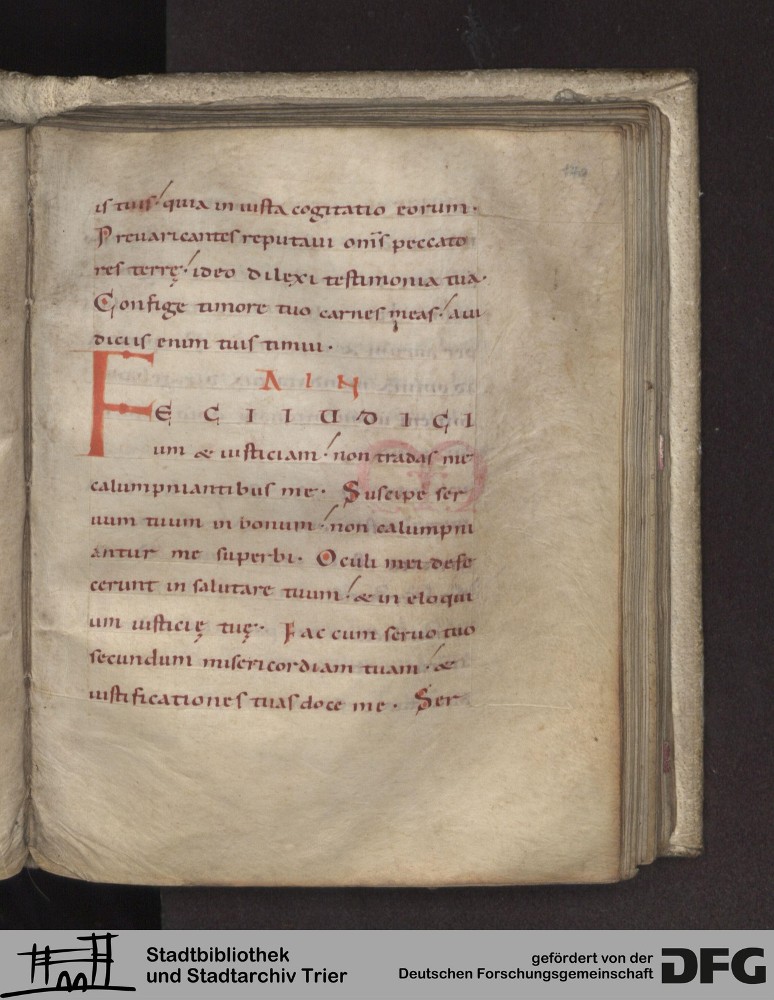 179
is tuis quia iniusta cogitatio eorum.
Prevaricantes reputavi om̄s peccato
res terrę ideo dilexi testimonia tua.
Confige timore tuo carnes meas. aiu
diciis enim tuis timui.
AIN
FECI IUDICI
um & iusticiam non tradas me
calumpniantibus me. Suscipe ser
uum tuum in bonum non calumpni
antur me superbi. Oculi mei defe
cerunt in salutare tuum & in eloqui
um iusticię tuę. Fac cum seruo tuo
secundum misericordiam tuam &
iustificationes tuas doce me. Ser
Stadtbibliothek
und Stadtarchiv Trier
gefördert von der
Deutschen Forschungsgemeinschaft DFG